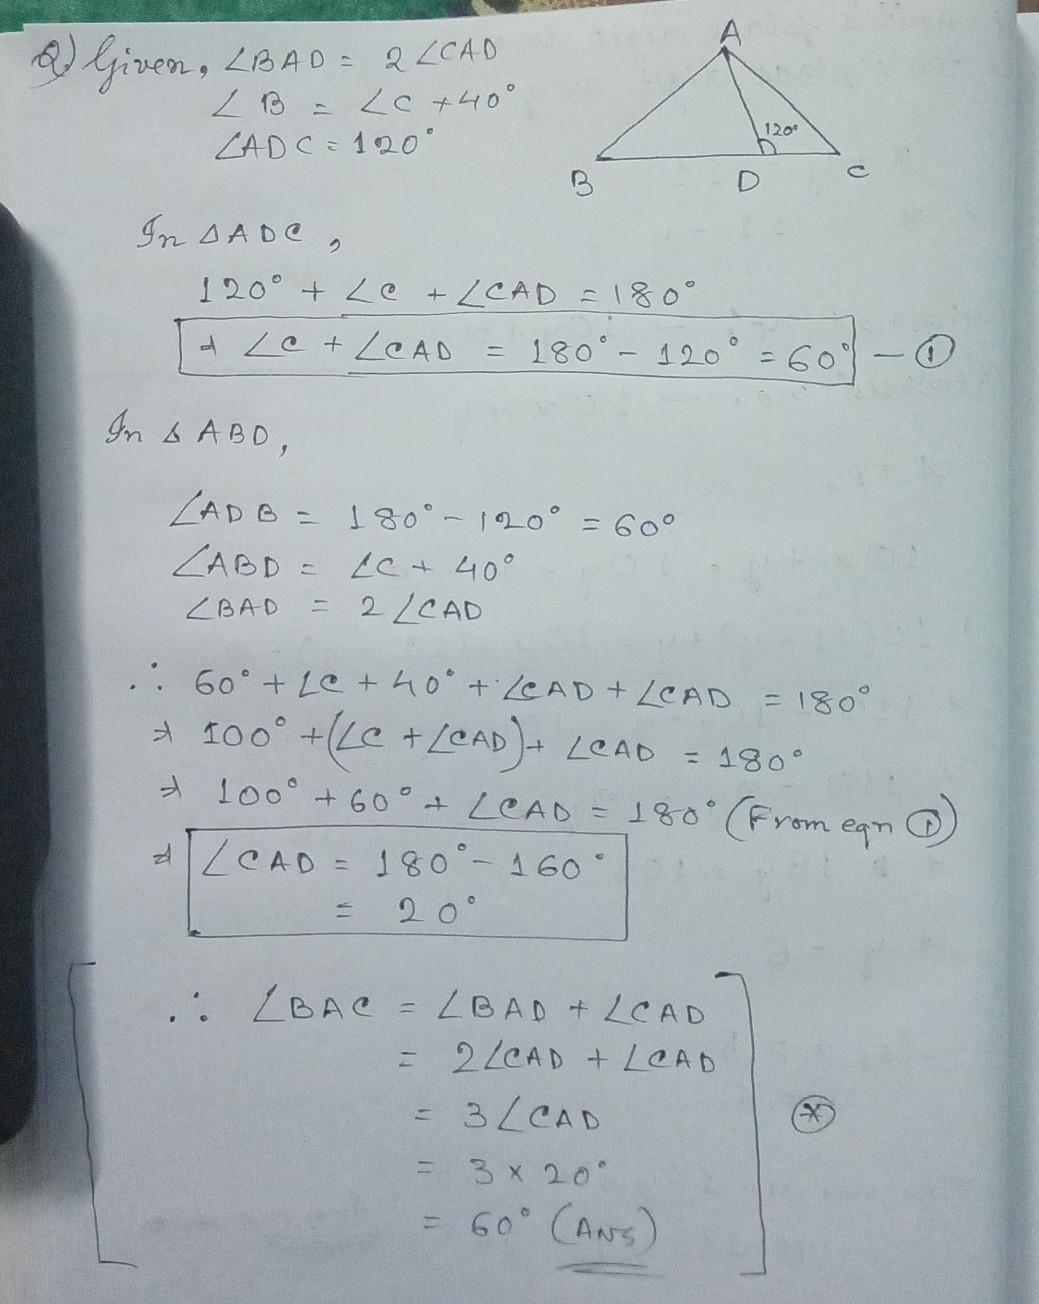 Q) Given, ∠BAD = 2∠CAD
∠B = ∠C + 40°
∠ADC = 120°
A
120°
B
D
C
In △ADC,
120° + ∠C + ∠CAD = 180°
⇒ ∠C + ∠CAD = 180° - 120° = 60° - ①
In △ABD,
∠ADB = 180° - 120° = 60°
∠ABD = ∠C + 40°
∠BAD = 2∠CAD
∴ 60° + ∠C + 40° + ∠CAD + ∠CAD = 180°
⇒ 100° + (∠C + ∠CAD) + ∠CAD = 180°
⇒ 100° + 60° + ∠CAD = 180° (From eqn ①)
⇒ ∠CAD = 180° - 160°
= 20°
∴ ∠BAC = ∠BAD + ∠CAD
= 2∠CAD + ∠CAD
= 3∠CAD
= 3 × 20°
= 60° (Ans)